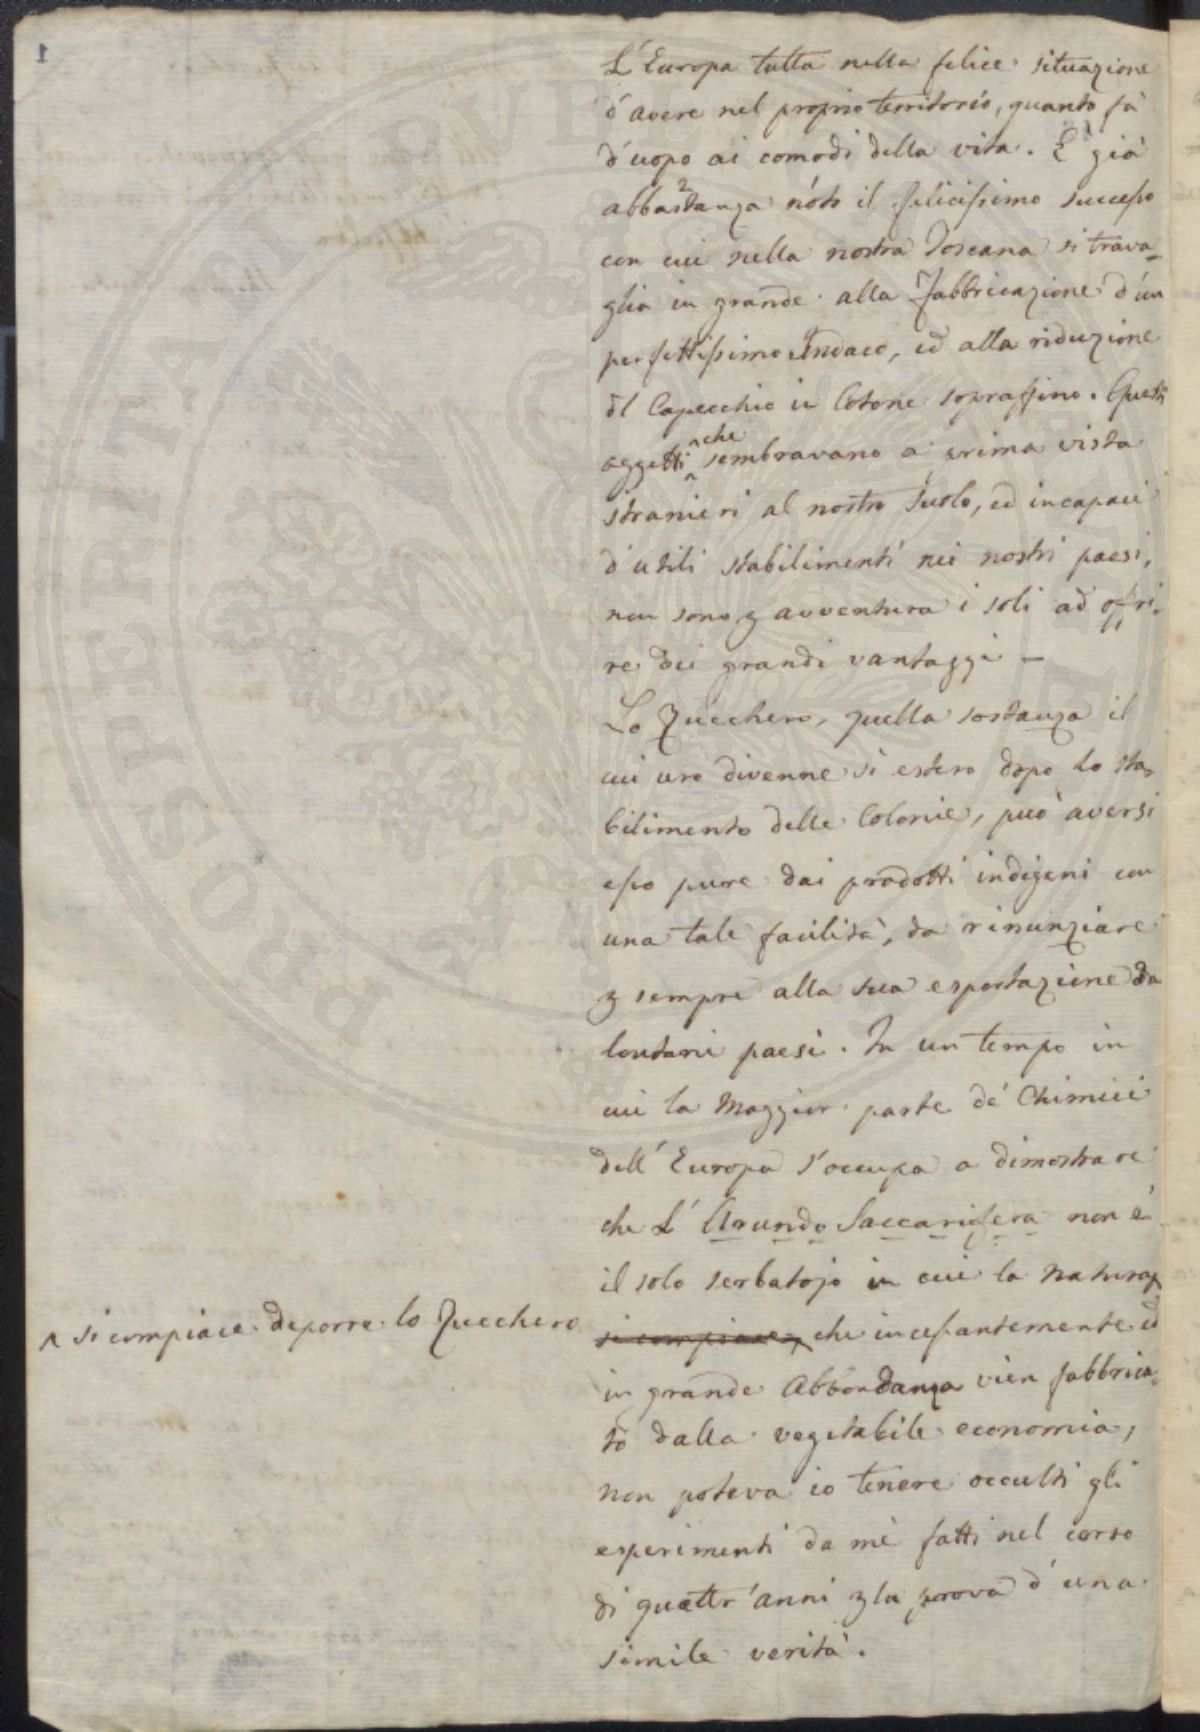 1
L'Europa tutta nella felice situazione
d'avere nel proprio territorio, quanto fà
d'uopo ai comodi della vita. E' già
abbastanza nóto il felicissimo successo
con cui nella nostra Toscana si trava=
glia in grande alla Fabbricazione d'un
perfettissimo Indaco, ed alla riduzione
del Capecchio in Cotone sopraffino. Questi
oggetti che sembravano a prima vista
stranieri al nostro suolo, ed incapaci
d'utili stabilimenti nei nostri paesi,
non sono p avventura i soli ad offri=
re dei grandi vantaggi –
Lo Zucchero, quella sostanza il
cui uso divenne sì esteso dopo lo sta=
bilimento delle Colonie, può aversi
esso pure dai prodotti indigeni con
una tale facilità, da rinunziare
p sempre alla sua esportazione da
lontani paesi. In un tempo in
cui la Maggior parte dé Chimici
dell'Europa s'occupa a dimostrare
che L'Arundo Saccarifera non é
il solo serbatojo in cui la Natura
^ si compiace deporre lo Zucchero
si compiace, che incessantemente ed
in grande Abbondanza vien fabbrica=
to dalla vegetabile economia,
non poteva io tenere occulti gli
esperimenti da mè fatti nel corso
di quattr'anni p la prova d'una
simile verità.
PROSPERITE